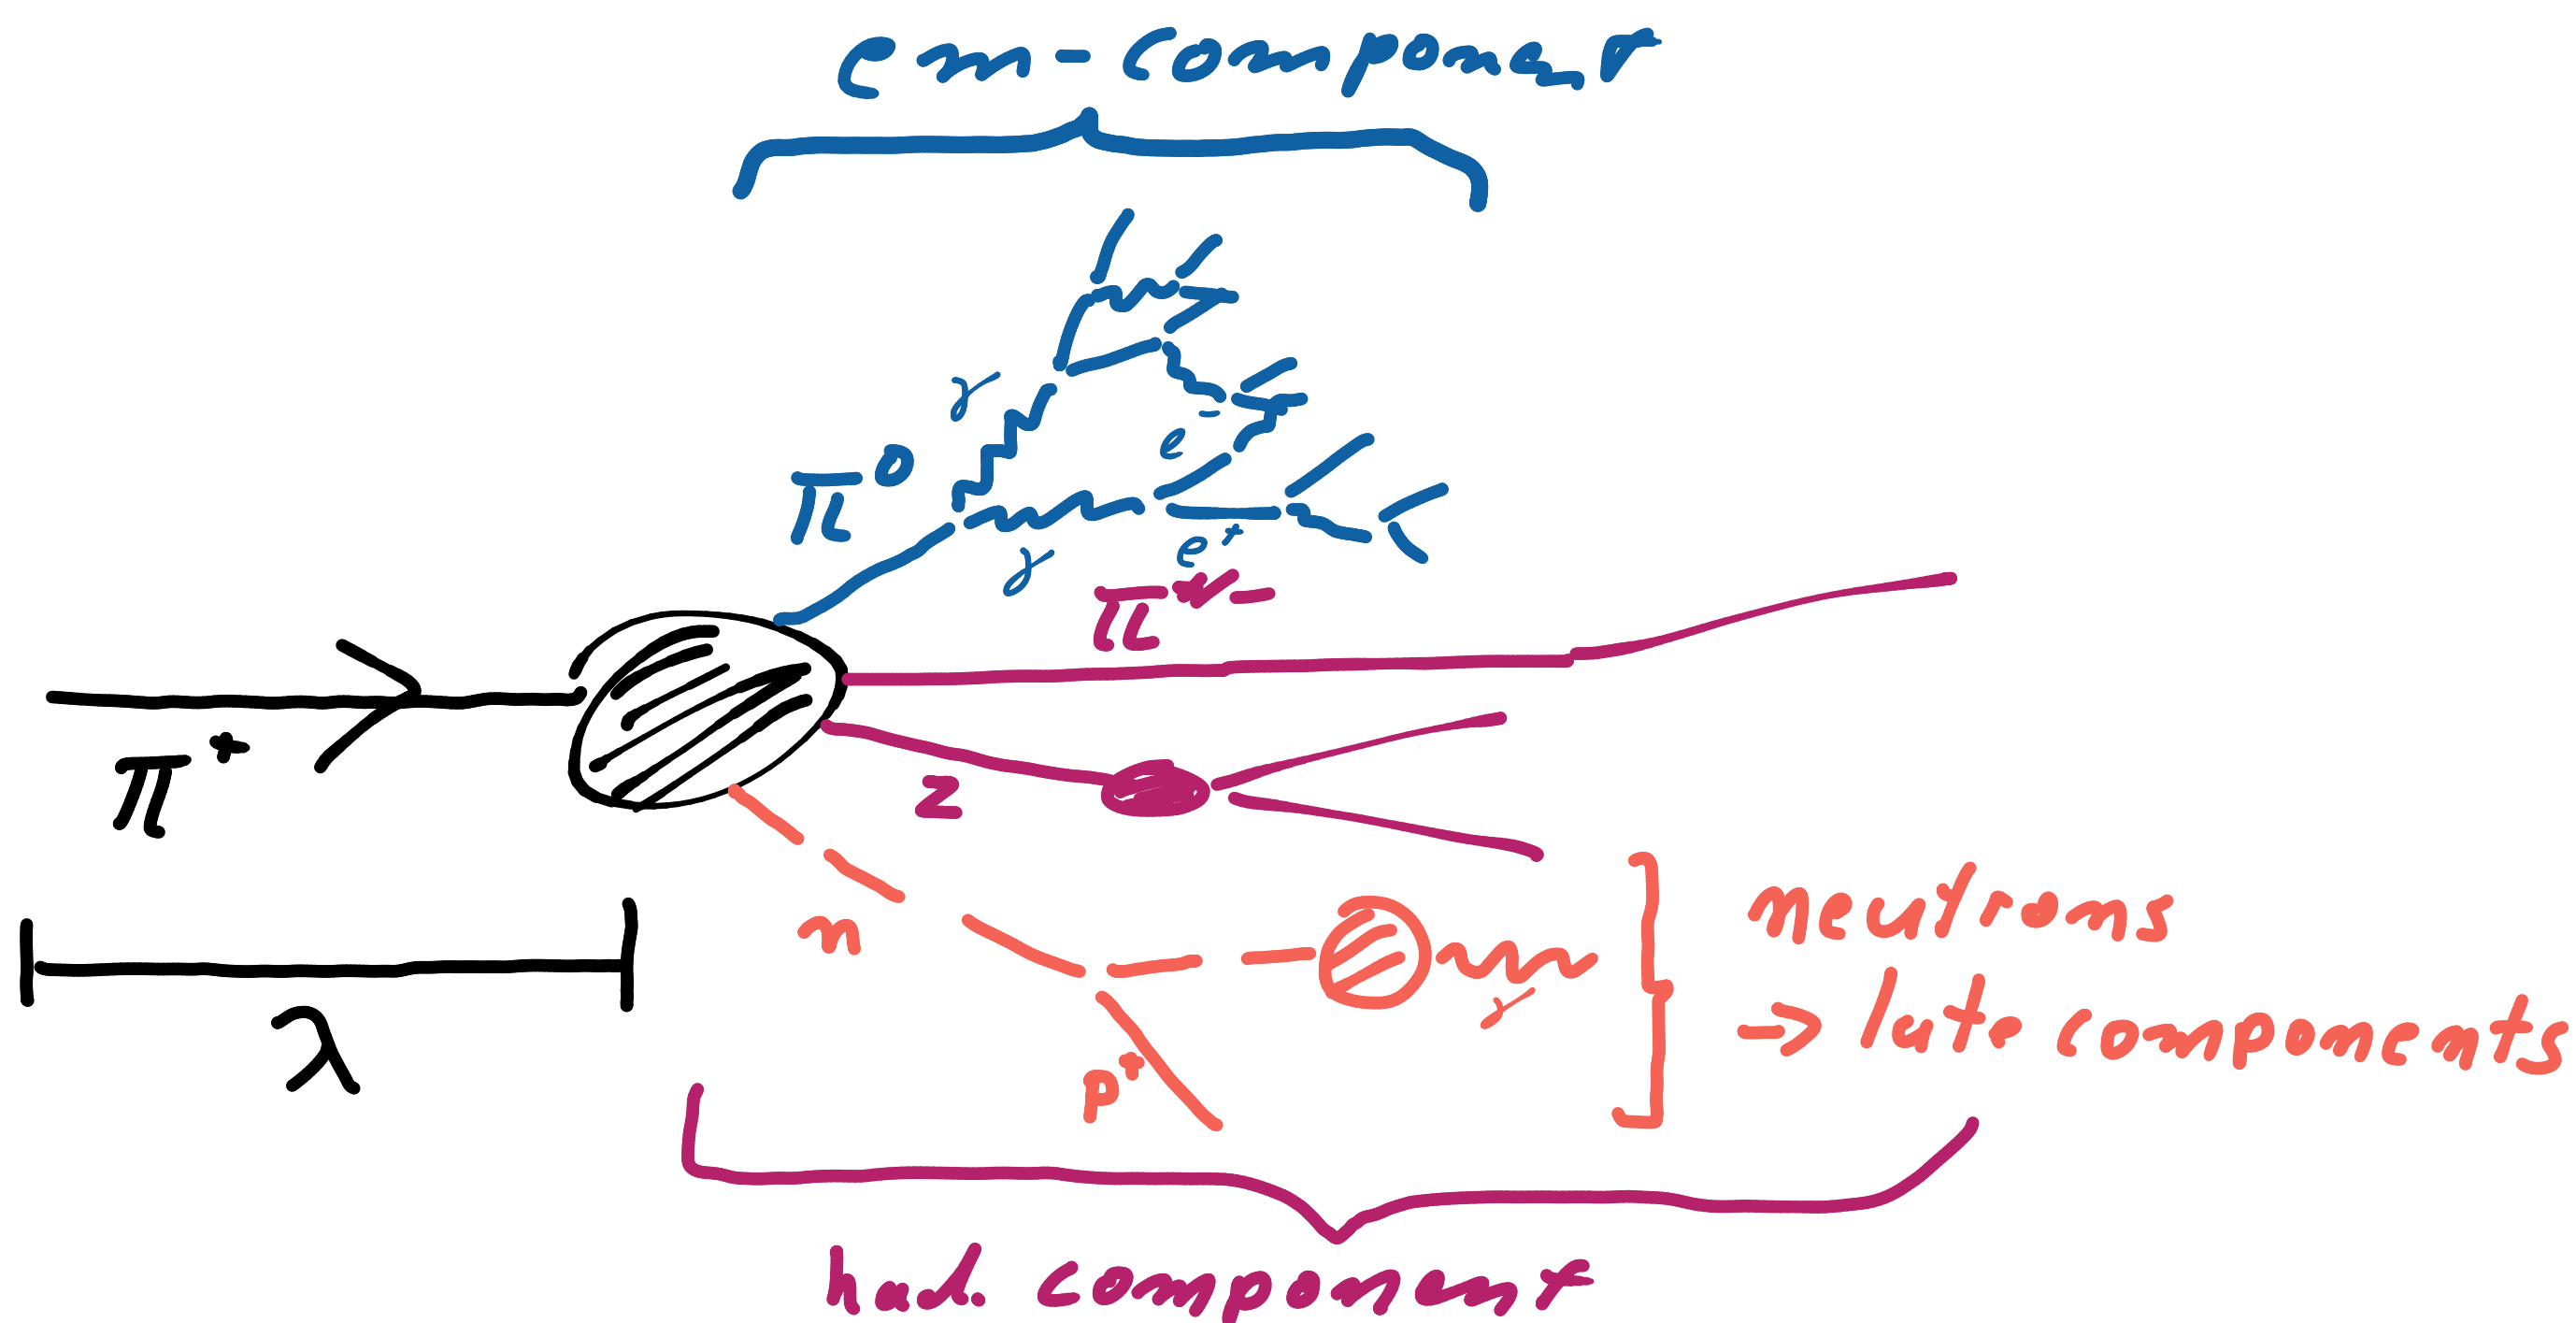 em-component
γ
π⁰
e⁻
γ
e⁺
π⁻
π⁺
z
n
γ
p⁺
λ
neutrons
→ late components
had. component